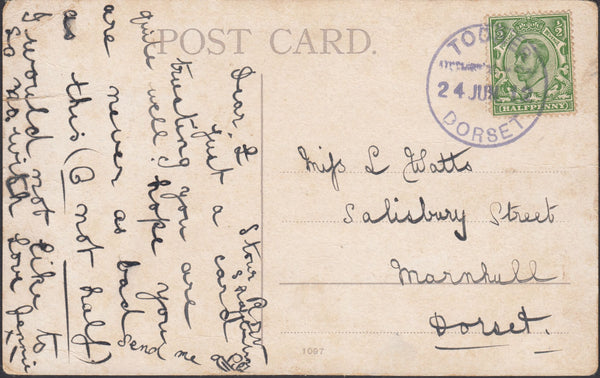 POST CARD.
Stour
Dear, L
just a card
trusting you are
quite well. hope you
are never as bad send me
as this (B not half)
I would not like to
So no, with love Jennie
xx
TOD
24 JUN
DORSET
½ ½
HALFPENNY
Miss L Watts
Salisbury Street
Marnhull
Dorset.
1097